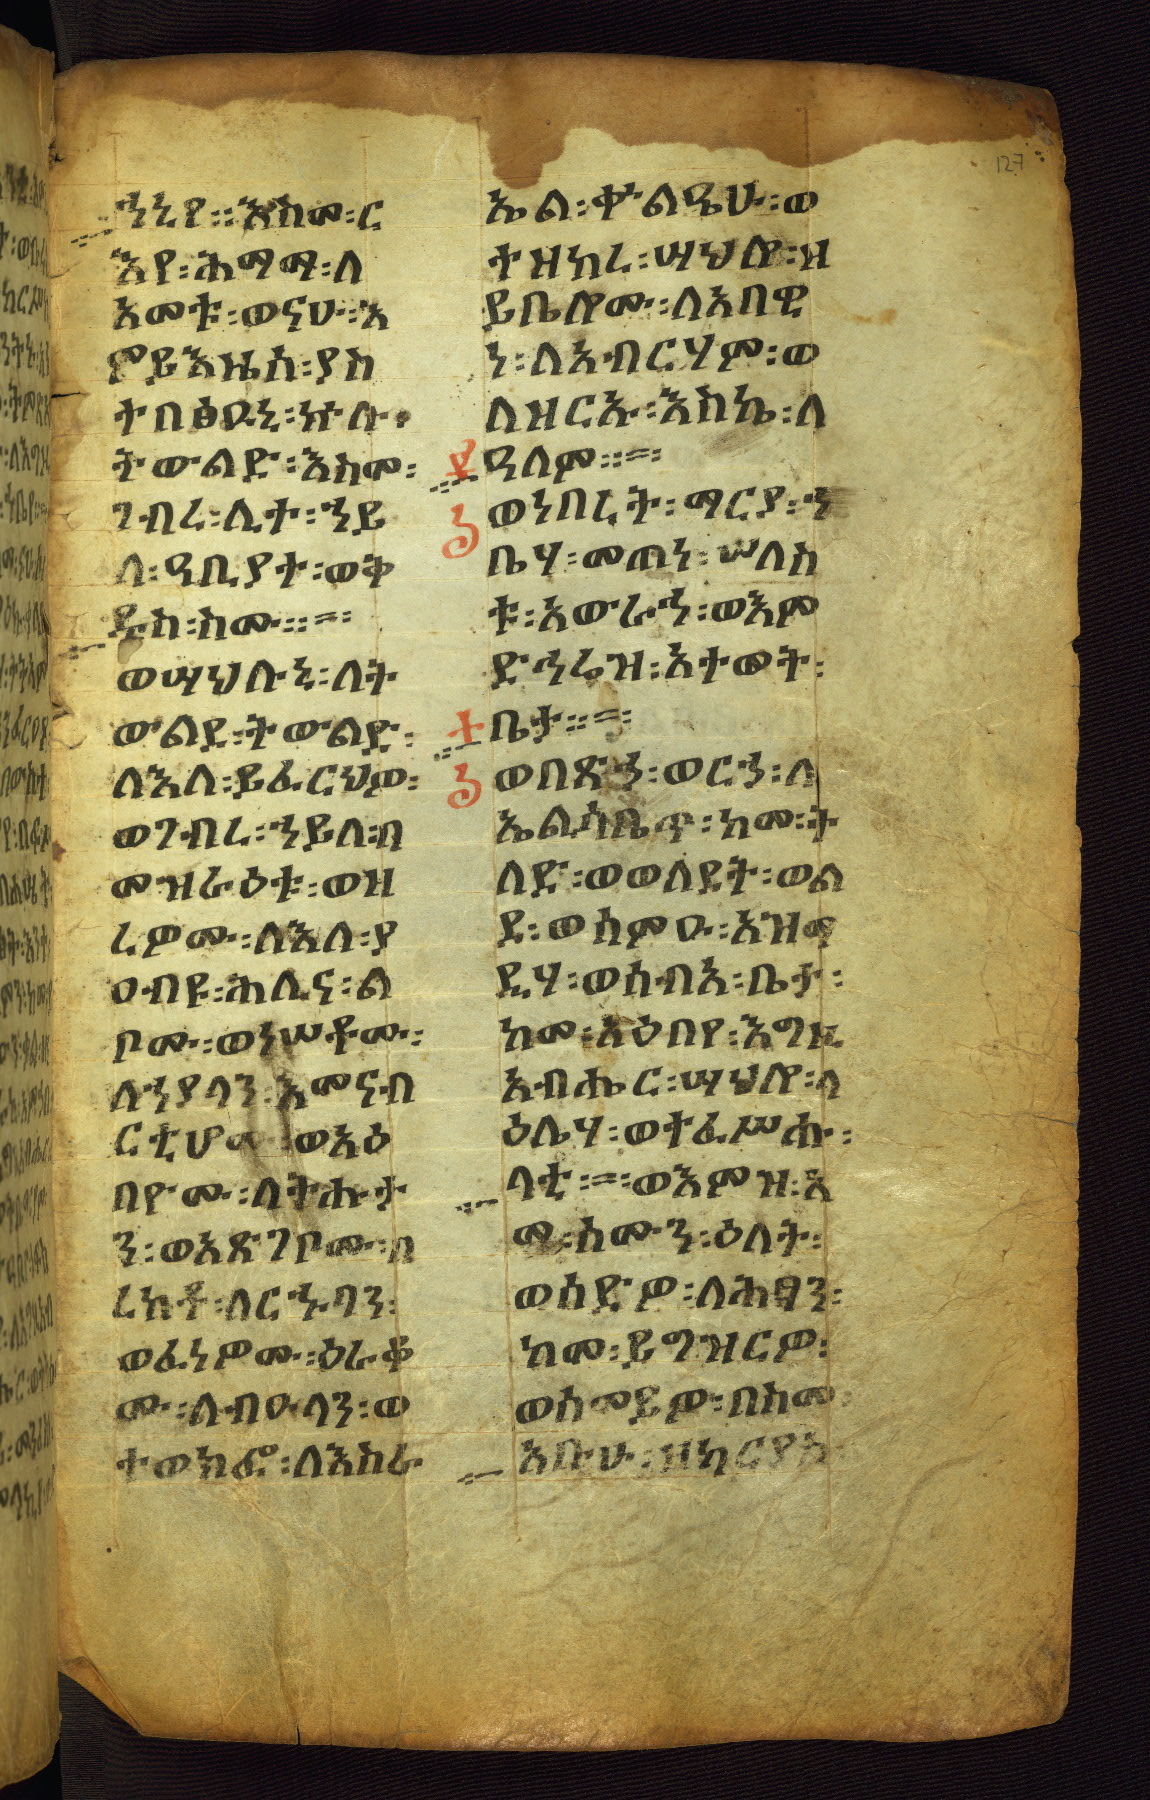 ኀኒየ ፡፡ እስመ ፡ ር
እየ ፡ ሕማማ ፡ ለ
አመቱ ፡ ወናሁ ፡ እ
ምይእዜሰ ፡ ያስ
ተበፅዑኒ ፡ ኵሉ ፡
ትውልድ ፡ እስመ ፡
ገብረ ፡ ሊተ ፡ ኀይ
ለ ፡ ዓቢያተ ፡ ወቅ
ዱስ ፡ ስሙ ፡፡=፡
ወሣህሉኒ ፡ ለት
ውልደ ፡ ትውልድ ፡
ለእለ ፡ ይፈርህዎ ፡
ወገብረ ፡ ኀይለ ፡ በ
መዝራዕቱ ፡ ወዘ
ረዎሙ ፡ ለእለ ፡ ያ
ዐብዩ ፡ ሕሊና ፡ ል
ቦሙ ፡ ወነሠቶሙ ፡
ለኃያላን ፡ እመናብ
ርቲሆሙ ፡ ወአዕ
በዮሙ ፡ ለትሑታ
ን ፡ ወአጽገቦሙ ፡ በ
ረከቶ ፡ ለርኁባን ፡
ወፈነዎሙ ፡ ዕራቆ
ሙ ፡ ለብዑላን ፡ ወ
ተወክፎ ፡ ለእስራ
ኤል ፡ ቍልዔሁ ፡ ወ
ተዝከረ ፡ ሣህሎ ፡ ዘ
ይቤሎሙ ፡ ለአበዊ
ነ ፡ ለአብርሃም ፡ ወ
ለዝርኡ ፡ እስከ ፡ ለ
ዓለም ፡፡=፡
ወነበረት ፡ ማርያ ፡ ኀ
ቤሃ ፡ መጠነ ፡ ሠለስ
ቱ ፡ አውራኅ ፡ ወእም
ድኅሬዝ ፡ አተወት ፡
ቤታ ፡፡=፡
፫ ወበጽሐ ፡ ወርኀ ፡ ለ
ኤልሳቤጥ ፡ ከመ ፡ ት
ለድ ፡ ወወለደት ፡ ወል
ደ ፡ ወሰምዑ ፡ አዝማ
ዲሃ ፡ ወሰብአ ፡ ቤታ ፡
ከመ ፡ አዕበየ ፡ እግዚ
አብሔር ፡ ሣህሎ ፡ ላ
ዕሌሃ ፡ ወተፈሥሑ ፡
ላቲ ፡=፡ ወእምዝ ፡ አ
መ ፡ ሰሙን ፡ ዕለት ፡
ወሰድዎ ፡ ለሕፃን ፡
ከመ ፡ ይግዝርዎ ፡
ወሰመይዎ ፡ በስመ
አቡሁ ፡ ዘካርያስ
127